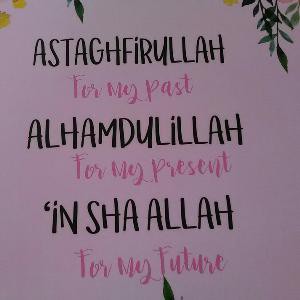 ASTAGHFiRULLAH
For My Past
ALHAMDULiLLAH
For My Present
'iN SHA ALLAH
For My Future